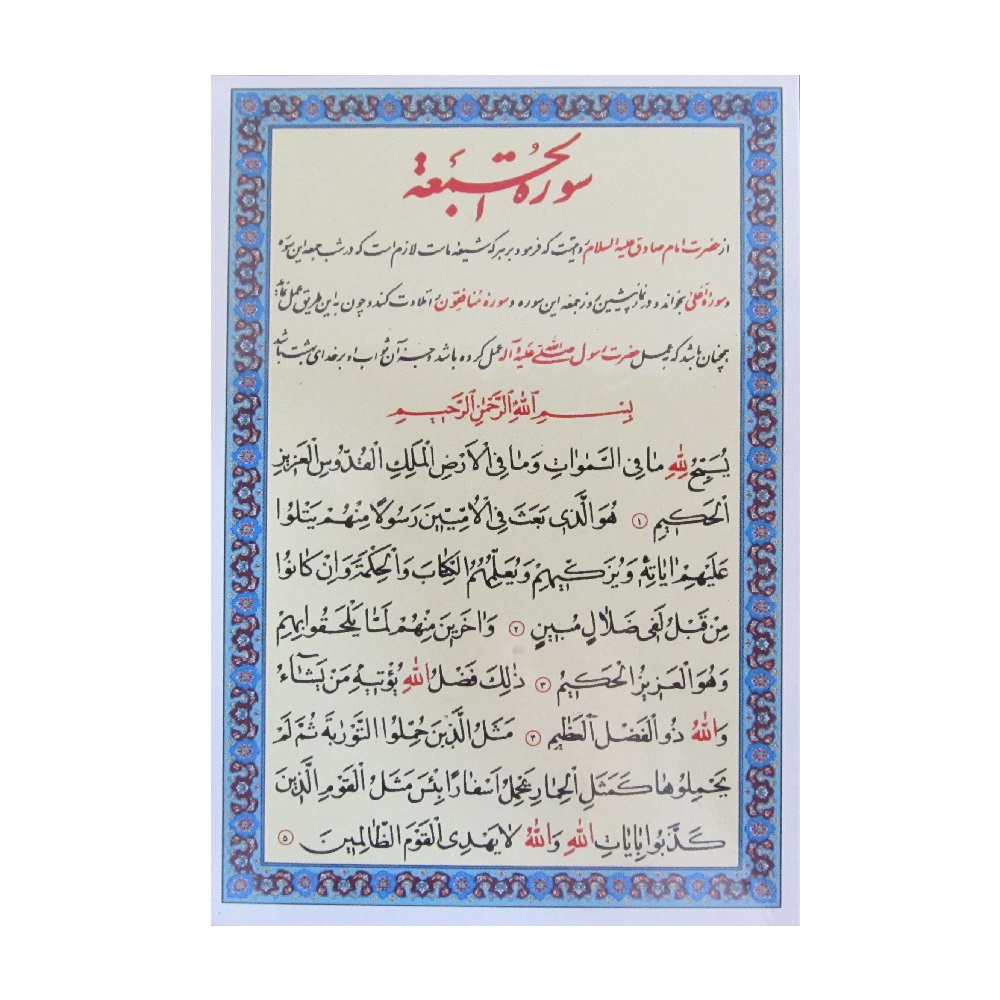 سورة الجمعة
از حضرت امام صادق علیه السلام روایتست که فرمود بر هر که شیعه ماست لازم است که در شب جمعه این سوره
و سوره اعلی بخواند و در نماز پیشین روز جمعه این سوره و سوره منافقون را تلاوت کند و چون به این طریق عمل نماید
همچنان باشد که به عمل حضرت رسول صلی الله علیه و آله عمل کرده باشد و جزای آن ثواب او بر خدای بهشت باشد
بِسْمِ اللهِ الرَّحْمٰنِ الرَّحِيمِ
يُسَبِّحُ لِلّٰهِ مَا فِى السَّمٰوَاتِ وَمَا فِى الْاَرْضِ الْمَلِكِ الْقُدُّوسِ الْعَزِيزِ
الْحَكِيمِ ۱ هُوَ الَّذِى بَعَثَ فِى الْاُمِّيِّينَ رَسُولًا مِنْهُمْ يَتْلُوا
عَلَيْهِمْ اٰيَاتِهٖ وَيُزَكِّيهِمْ وَيُعَلِّمُهُمُ الْكِتَابَ وَالْحِكْمَةَ وَاِنْ كَانُوا
مِنْ قَبْلُ لَفِى ضَلَالٍ مُبِينٍ ۲ وَاٰخَرِينَ مِنْهُمْ لَمَّا يَلْحَقُوا بِهِمْ
وَهُوَ الْعَزِيزُ الْحَكِيمُ ۳ ذٰلِكَ فَضْلُ اللهِ يُؤْتِيهِ مَنْ يَشَآءُ
وَاللهُ ذُو الْفَضْلِ الْعَظِيمِ ۴ مَثَلُ الَّذِينَ حُمِّلُوا التَّوْرٰيةَ ثُمَّ لَمْ
يَحْمِلُوهَا كَمَثَلِ الْحِمَارِ يَحْمِلُ اَسْفَارًا بِئْسَ مَثَلُ الْقَوْمِ الَّذِينَ
كَذَّبُوا بِاٰيَاتِ اللهِ وَاللهُ لَا يَهْدِى الْقَوْمَ الظَّالِمِينَ ۵